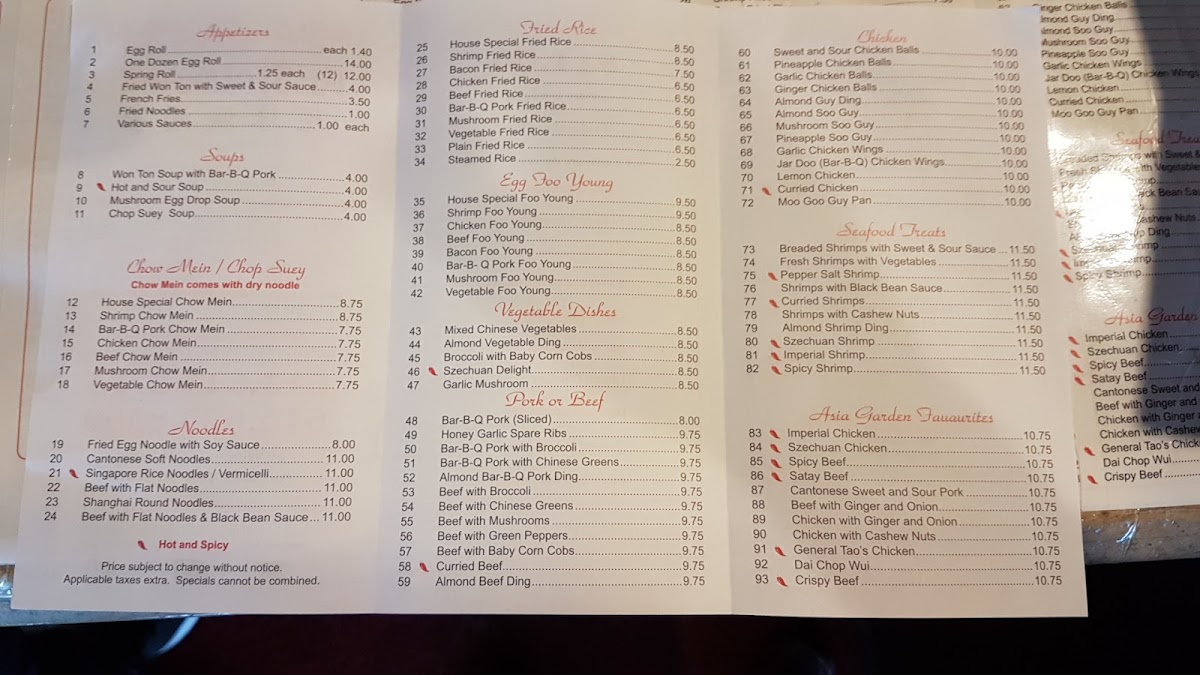 Appetizers
1 Egg Roll each 1.40
2 One Dozen Egg Roll 14.00
3 Spring Roll 1.25 each (12) 12.00
4 Fried Won Ton with Sweet & Sour Sauce 4.00
5 French Fries 3.50
6 Fried Noodles 1.00
7 Various Sauces 1.00 each
Soups
8 Won Ton Soup with Bar-B-Q Pork 4.00
9 Hot and Sour Soup 4.00
10 Mushroom Egg Drop Soup 4.00
11 Chop Suey Soup 4.00
Chow Mein / Chop Suey
Chow Mein comes with dry noodle
12 House Special Chow Mein 8.75
13 Shrimp Chow Mein 8.75
14 Bar-B-Q Pork Chow Mein 7.75
15 Chicken Chow Mein 7.75
16 Beef Chow Mein 7.75
17 Mushroom Chow Mein 7.75
18 Vegetable Chow Mein 7.75
Noodles
19 Fried Egg Noodle with Soy Sauce 8.00
20 Cantonese Soft Noodles 11.00
21 Singapore Rice Noodles / Vermicelli 11.00
22 Beef with Flat Noodles 11.00
23 Shanghai Round Noodles 11.00
24 Beef with Flat Noodles & Black Bean Sauce 11.00
Hot and Spicy
Price subject to change without notice.
Applicable taxes extra. Specials cannot be combined.
Fried Rice
25 House Special Fried Rice 8.50
26 Shrimp Fried Rice 8.50
27 Bacon Fried Rice 7.50
28 Chicken Fried Rice 6.50
29 Beef Fried Rice 6.50
30 Bar-B-Q Pork Fried Rice 6.50
31 Mushroom Fried Rice 6.50
32 Vegetable Fried Rice 6.50
33 Plain Fried Rice 6.50
34 Steamed Rice 2.50
Egg Foo Young
35 House Special Foo Young 9.50
36 Shrimp Foo Young 9.50
37 Chicken Foo Young 8.50
38 Beef Foo Young 8.50
39 Bacon Foo Young 8.50
40 Bar-B- Q Pork Foo Young 8.50
41 Mushroom Foo Young 8.50
42 Vegetable Foo Young 8.50
Vegetable Dishes
43 Mixed Chinese Vegetables 8.50
44 Almond Vegetable Ding 8.50
45 Broccoli with Baby Corn Cobs 8.50
46 Szechuan Delight 8.50
47 Garlic Mushroom 8.50
Pork or Beef
48 Bar-B-Q Pork (Sliced) 8.00
49 Honey Garlic Spare Ribs 9.75
50 Bar-B-Q Pork with Broccoli 9.75
51 Bar-B-Q Pork with Chinese Greens 9.75
52 Almond Bar-B-Q Pork Ding 9.75
53 Beef with Broccoli 9.75
54 Beef with Chinese Greens 9.75
55 Beef with Mushrooms 9.75
56 Beef with Green Peppers 9.75
57 Beef with Baby Corn Cobs 9.75
58 Curried Beef 9.75
59 Almond Beef Ding 9.75
Chicken
60 Sweet and Sour Chicken Balls 10.00
61 Pineapple Chicken Balls 10.00
62 Garlic Chicken Balls 10.00
63 Ginger Chicken Balls 10.00
64 Almond Guy Ding 10.00
65 Almond Soo Guy 10.00
66 Mushroom Soo Guy 10.00
67 Pineapple Soo Guy 10.00
68 Garlic Chicken Wings 10.00
69 Jar Doo (Bar-B-Q) Chicken Wings 10.00
70 Lemon Chicken 10.00
71 Curried Chicken 10.00
72 Moo Goo Guy Pan 10.00
Seafood Treats
73 Breaded Shrimps with Sweet & Sour Sauce 11.50
74 Fresh Shrimps with Vegetables 11.50
75 Pepper Salt Shrimp 11.50
76 Shrimps with Black Bean Sauce 11.50
77 Curried Shrimps 11.50
78 Shrimps with Cashew Nuts 11.50
79 Almond Shrimp Ding 11.50
80 Szechuan Shrimp 11.50
81 Imperial Shrimp 11.50
82 Spicy Shrimp 11.50
Asia Garden Favaurites
83 Imperial Chicken 10.75
84 Szechuan Chicken 10.75
85 Spicy Beef 10.75
86 Satay Beef 10.75
87 Cantonese Sweet and Sour Pork 10.75
88 Beef with Ginger and Onion 10.75
89 Chicken with Ginger and Onion 10.75
90 Chicken with Cashew Nuts 10.75
91 General Tao's Chicken 10.75
92 Dai Chop Wui 10.75
93 Crispy Beef 10.75
Ginger Chicken Balls
Almond Guy Ding
Almond Soo Guy
Mushroom Soo Guy
Pineapple Soo Guy
Garlic Chicken Wings
Jar Doo (Bar-B-Q) Chicken Wings
Lemon Chicken
Curried Chicken
Moo Goo Guy Pan
Seafood
Breaded Shrimps with Sweet &
Fresh Shrimps with Vegetable
Black Bean
Cashew Nuts
Ding
Shrimp
Spicy Shrimp
Asia Garden
Imperial Chicken
Szechuan Chicken
Spicy Beef
Satay Beef
Cantonese Sweet and
Beef with Ginger and
Chicken with Ginger
Chicken with Cashew
General Tao's Chicken
Dai Chop Wui
Crispy Beef